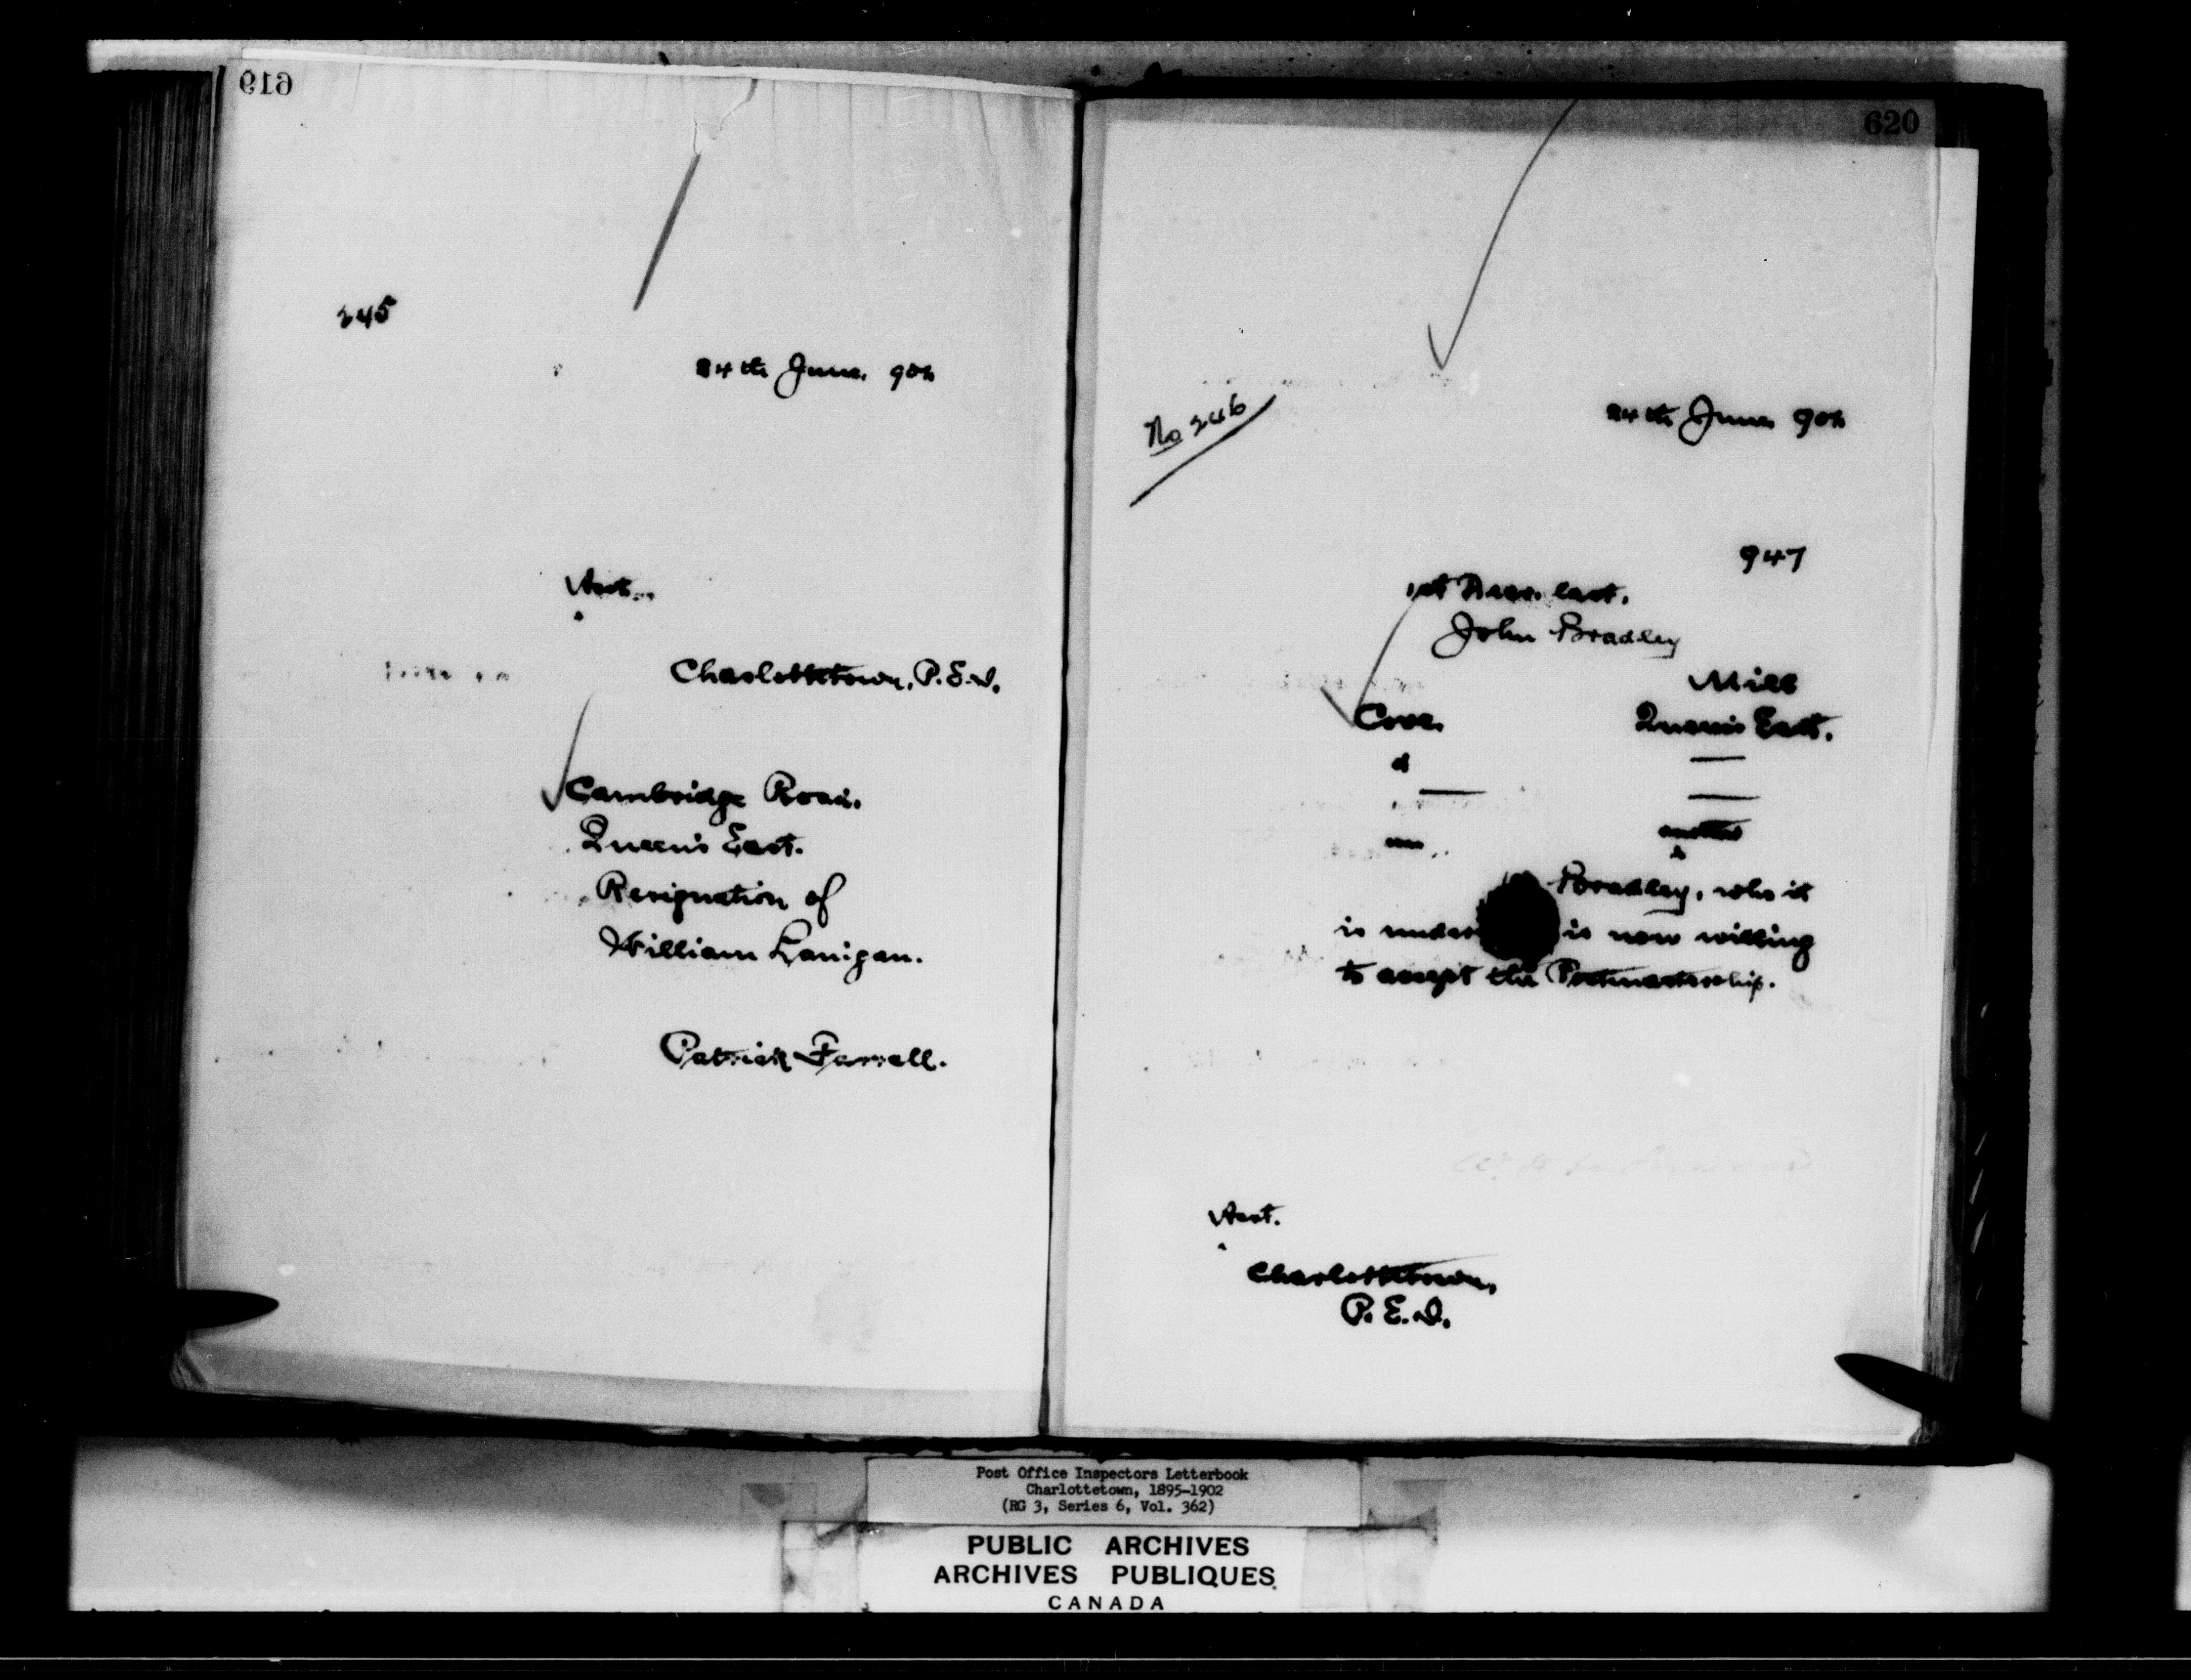 619
245
24th June, 902
Asst.
Charlottetown, P.E.I.
Cambridge Road.
Queen's East.
Resignation of
William Lanigan.
Patrick Farrell.
620
No 246
24th June 902
947
1st last.
John Bradley
Mill
Cove. Queen's East.
d
another
Bradley, who it
is under is now willing
to accept the Postmastership.
Asst.
Charlottetown,
P.E.I.
Post Office Inspectors Letterbook
Charlottetown, 1895-1902
(RG 3, Series 6, Vol. 362)
PUBLIC ARCHIVES
ARCHIVES PUBLIQUES
CANADA